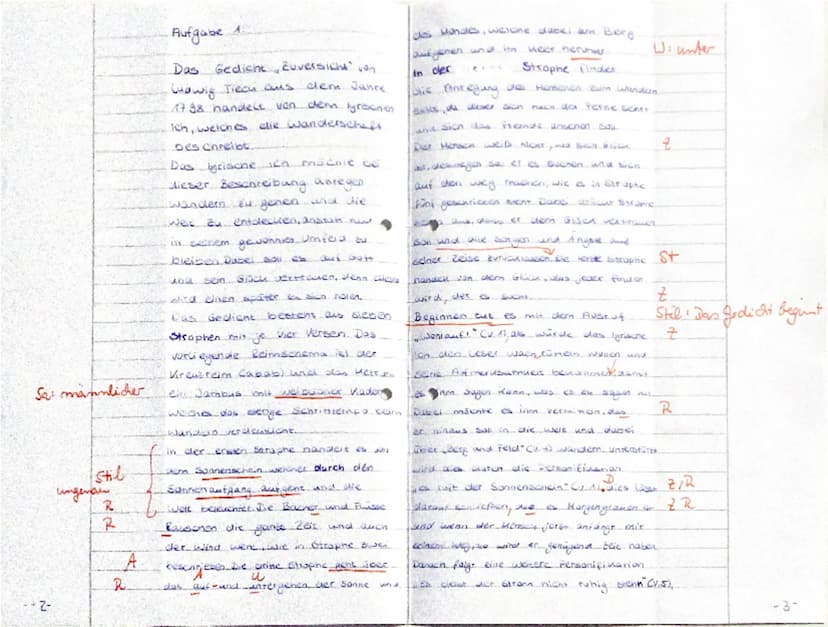 Aufgabe 1:
Das Gedicht „Zuversicht" von
Ludwig Tieck aus dem Jahre
1798 handelt von dem lyrischen
Ich, welches die Wanderschaft
beschreibt.
Das lyrische Ich möchte bei
dieser Beschreibung anregen
wandern zu gehen und die
Welt zu entdecken, anstatt nur
in seinem gewohnten Umfeld zu
bleiben. Dabei soll es auf Gott
und sein Glück vertrauen, denn
wird einen später es sich holen.
Das Gedicht besteht aus sieben
Strophen mit je vier Versen. Das
vorliegende Reimschema ist der
Kreuzreim (abab) und das Metrum
Sa: männlicher
ein Jambus mit weiblicher Kadenz
welches das Schritttempo beim
Wandern verdeutlicht.
In der ersten Strophe handelt es von
Stil
dem Sonnenschein welcher durch den
ungenau
Sonnenaufgang aufgeht und die
R
Welt beleuchtet. Die Bächer und Flüsse
R
Rauschen die ganze Zeit und auch
der Wind weht, wie in Strophe zwei
A
beschrieben. Die dritte Strophe geht über
R
das auf- und untergehen der Sonne und
-2-
des Mondes, welche dabei am Berg
aufgehen und im Meer herunter
W: unter
In der Strophe findet
die Anregung des Menschen zum Wandern
statt, da dieser sich nach der Ferne sehnt
und sich das Fremde ansehen soll.
Der Mensch weiß nicht, wo sein Glück
Z
ist, deswegen soll er es suchen und sich
auf den Weg machen, wie es in Strophe
fünf geschrieben steht. Dabei drückt Strophe
aus, dass er dem Glück vertrauen
soll und alle Sorgen und Ängste auf
seiner Reise zurücklassen. Die letzte Strophe
St
handelt von dem Glück, das jeder finden
wird, der es sucht.
Z
Beginnen tut es mit dem Ausruf
Stil: Das Gedicht beginnt
„Wohlauf!" (V.1), als würde das lyrische
Z
Ich den Leser wachrütteln wollen und
seine Aufmerksamkeit bekommen damit
es ihm sagen kann, was es zu sagen hat.
Dabei möchte es ihm vermitteln, das
R
er hinaus soll in die Welt und dabei
über „Berg und Feld" wandern. Unterstützt
wird dies durch die Personifikation
„es ruft der Sonnenschein" (V.1), dies lässt
Z, R
darauf schließen, das es Morgengrauen ist
Z R
und wenn der Mensch jetzt anfängt mit
seinem Weg, so wird er genügend Zeit haben.
Danach folgt eine weitere Personifikation
„Es bleibt der Strom nicht ruhig stehn" (V.5),
-3-